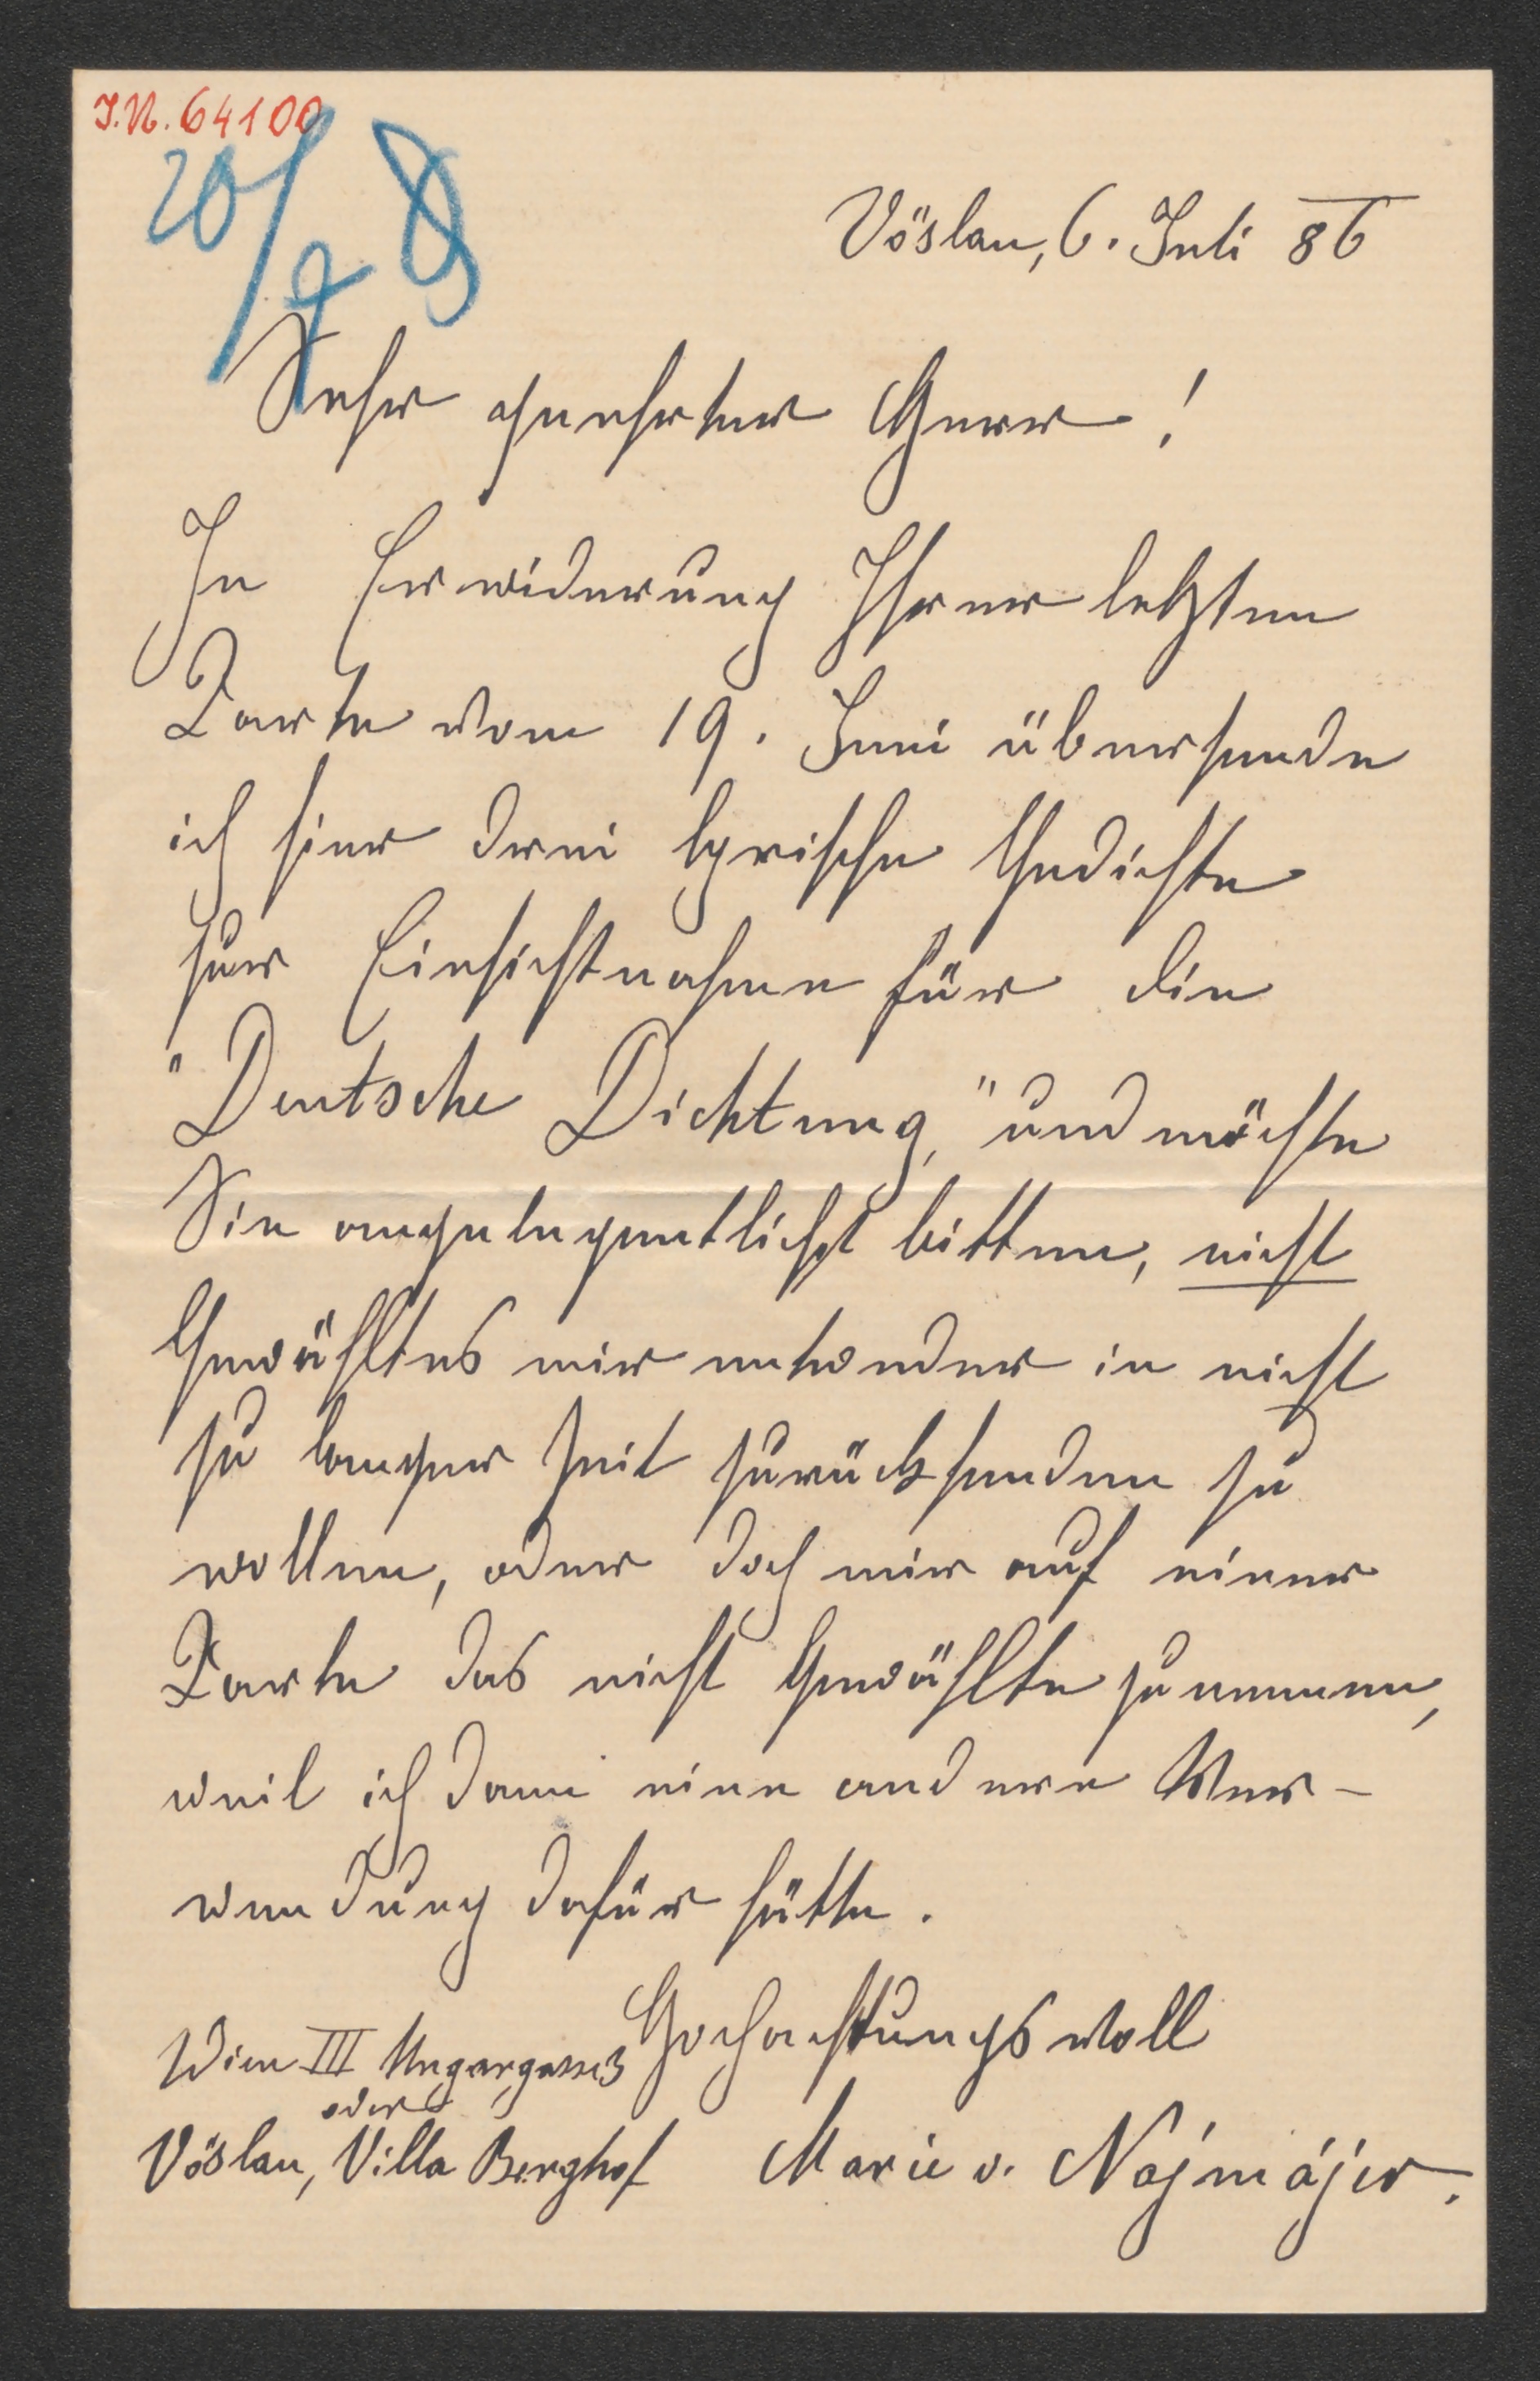 I.N. 64100
20/7
Vöslau, 6. Juli 86
Sehr geehrter Herr!
In Erwiderung Ihrer letzten
Karte vom 19. Juni übersende
ich hier drei lyrische Gedichte
zur Einsichtnahme für die
"Deutsche Dichtung," und möchte
Sie angelegentlichst bitten, nicht
Gewähltes mir entweder in nicht
zu langer Zeit zurücksenden zu
wollen, oder doch mir auf einer
Karte das nicht Gewählte zu nennen,
weil ich dann eine andere Ver-
wendung dafür hätte.
Hochachtungsvoll
Wien III Ungargasse 3
oder
Vöslau, Villa Berghof
Marie v. Najmájer.